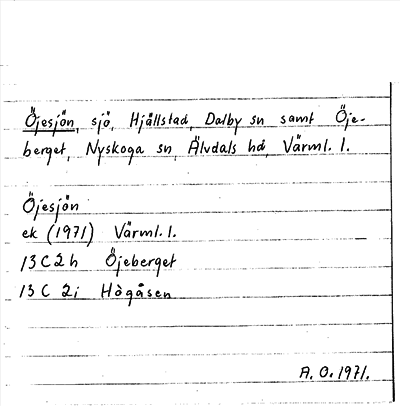 Öjesjön, sjö, Hjällstad, Dalby sn samt Öje-
berget, Nyskoga sn, Älvdals hd, Värml. l.
Öjesjön
ek (1971) Värml. l.
13 C 2 h Öjeberget
13 C 2 i Högåsen
A. O. 1971.